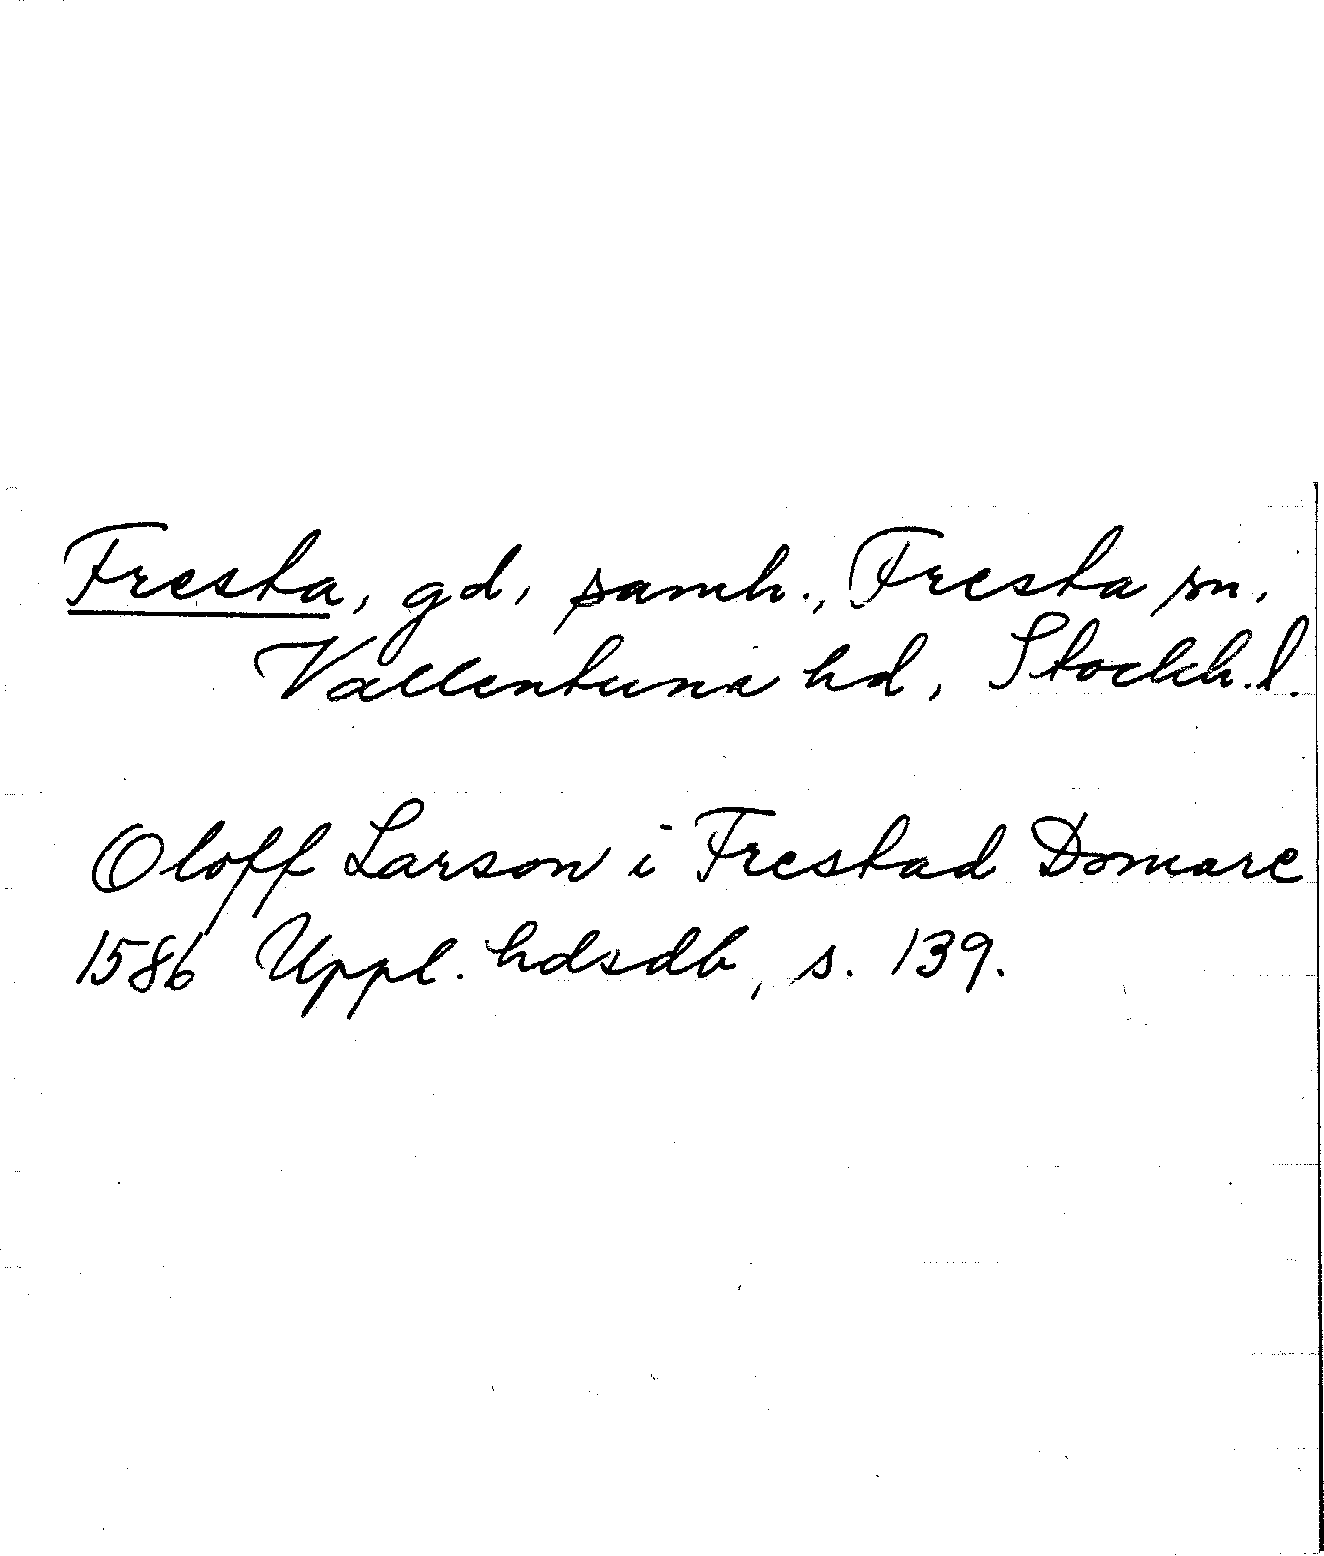 Fresta, gd, samh., Fresta sn,
Vallentuna hd, Stockh. l.
Oloff Larson i Frestad Domare
1586 Uppl. hdsdb, s. 139.